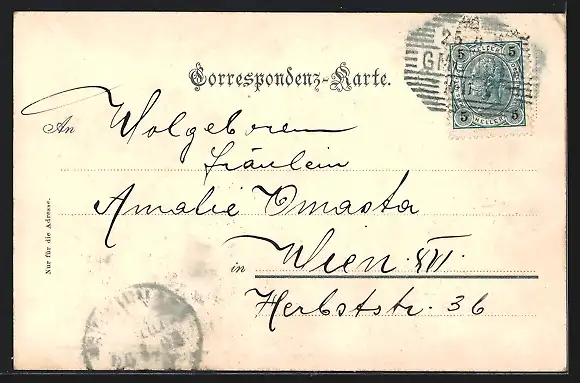 Correspondenz-Karte.
An Wolgeboren
Fräulein
Amalie Omasta
in Wien XVI.
Herbststr. 36
Nur für die Adresse.
5 5
5 HELLER 5
25
GM